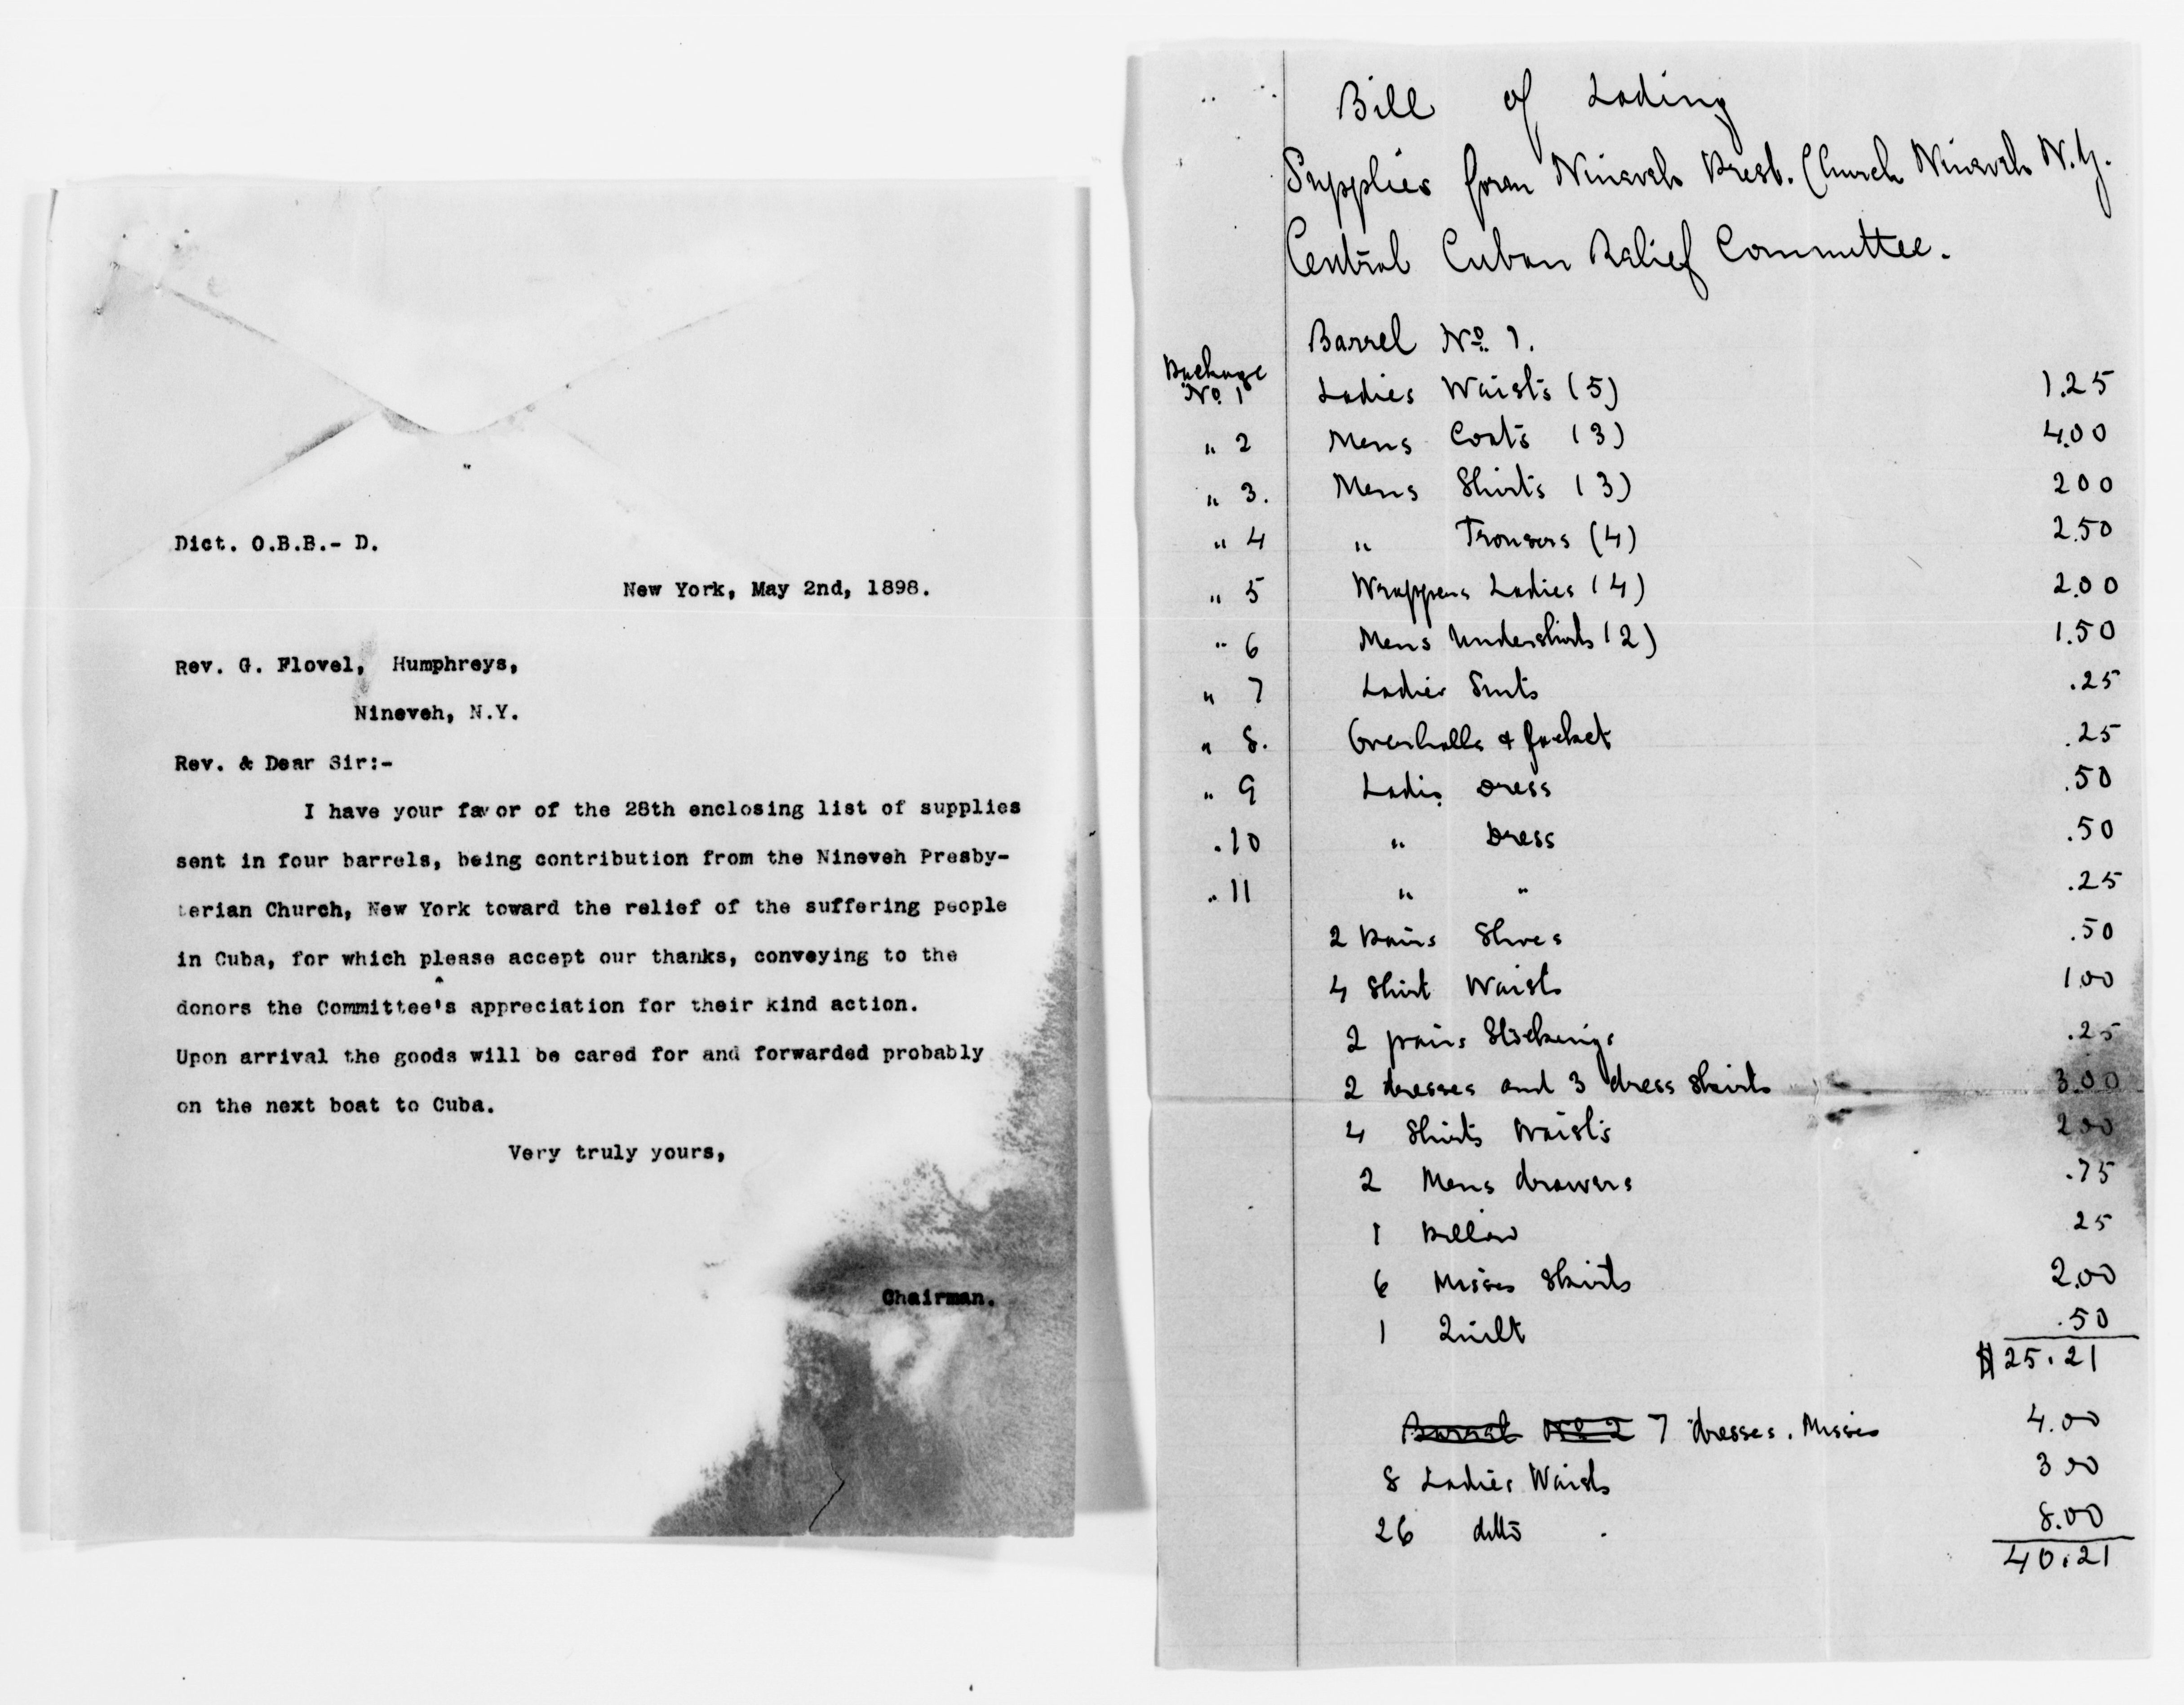 Dict. O.B.B.- D.
New York, May 2nd, 1898.
Rev. G. Flovel, Humphreys,
Nineveh, N.Y.
Rev. & Dear Sir:-
I have your favor of the 28th enclosing list of supplies
sent in four barrels, being contribution from the Nineveh Presby-
terian Church, New York toward the relief of the suffering people
in Cuba, for which please accept our thanks, conveying to the
donors the Committee's appreciation for their kind action.
Upon arrival the goods will be cared for and forwarded probably
on the next boat to Cuba.
Very truly yours,
Chairman.
Bill of Lading
Supplies from Nineveh Presb. Church Nineveh N.Y.
Central Cuban Relief Committee.
Barrel No. 1.
Package No. 1 Ladies Waists (5) 1.25
" 2 Mens Coats (3) 4.00
" 3. Mens Shirts (3) 2 00
" 4 " Trousers (4) 2.50
" 5 Wrappers Ladies (4) 2.00
" 6 Mens Undershirts (2) 1.50
" 7 Ladies Suits .25
" 8. Overhalls & Jacket .25
" 9 Ladies Dress .50
" 10 " Dress .50
" 11 " " .25
2 Pairs Shoes .50
4 Shirt Waists 1 00
2 pairs Stockings .25
2 dresses and 3 dress Skirts 3.00
4 Shirts Waists 2 00
2 Mens drawers .75
1 Pillow 25
6 Misses Skirts 2.00
1 Quilt .50
$25.21
Barrel No 2 7 dresses. Misses 4.00
8 Ladies Waists 3 00
26 ditto 8.00
40.21